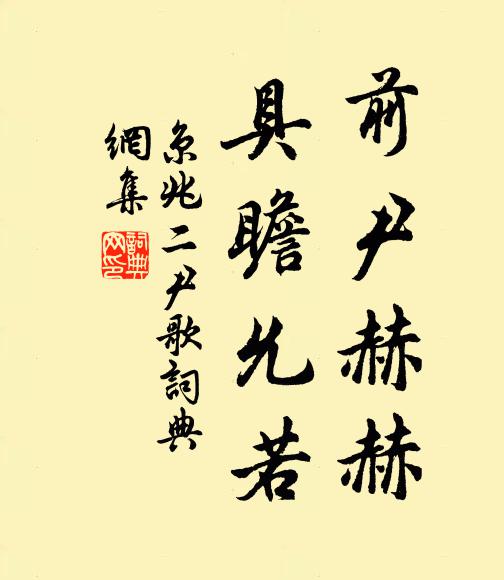 前尹赫赫
具瞻允若
京兆二尹歌詞典
網集
詞典
网印